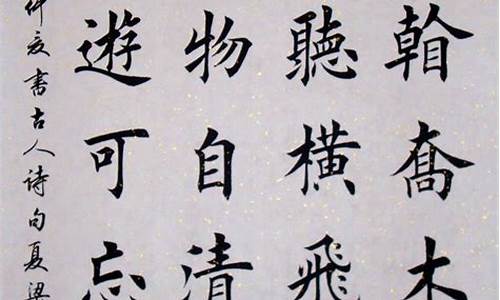 喬木
聽橫飛
物自清
遊可忘
書古人诗句夏梁